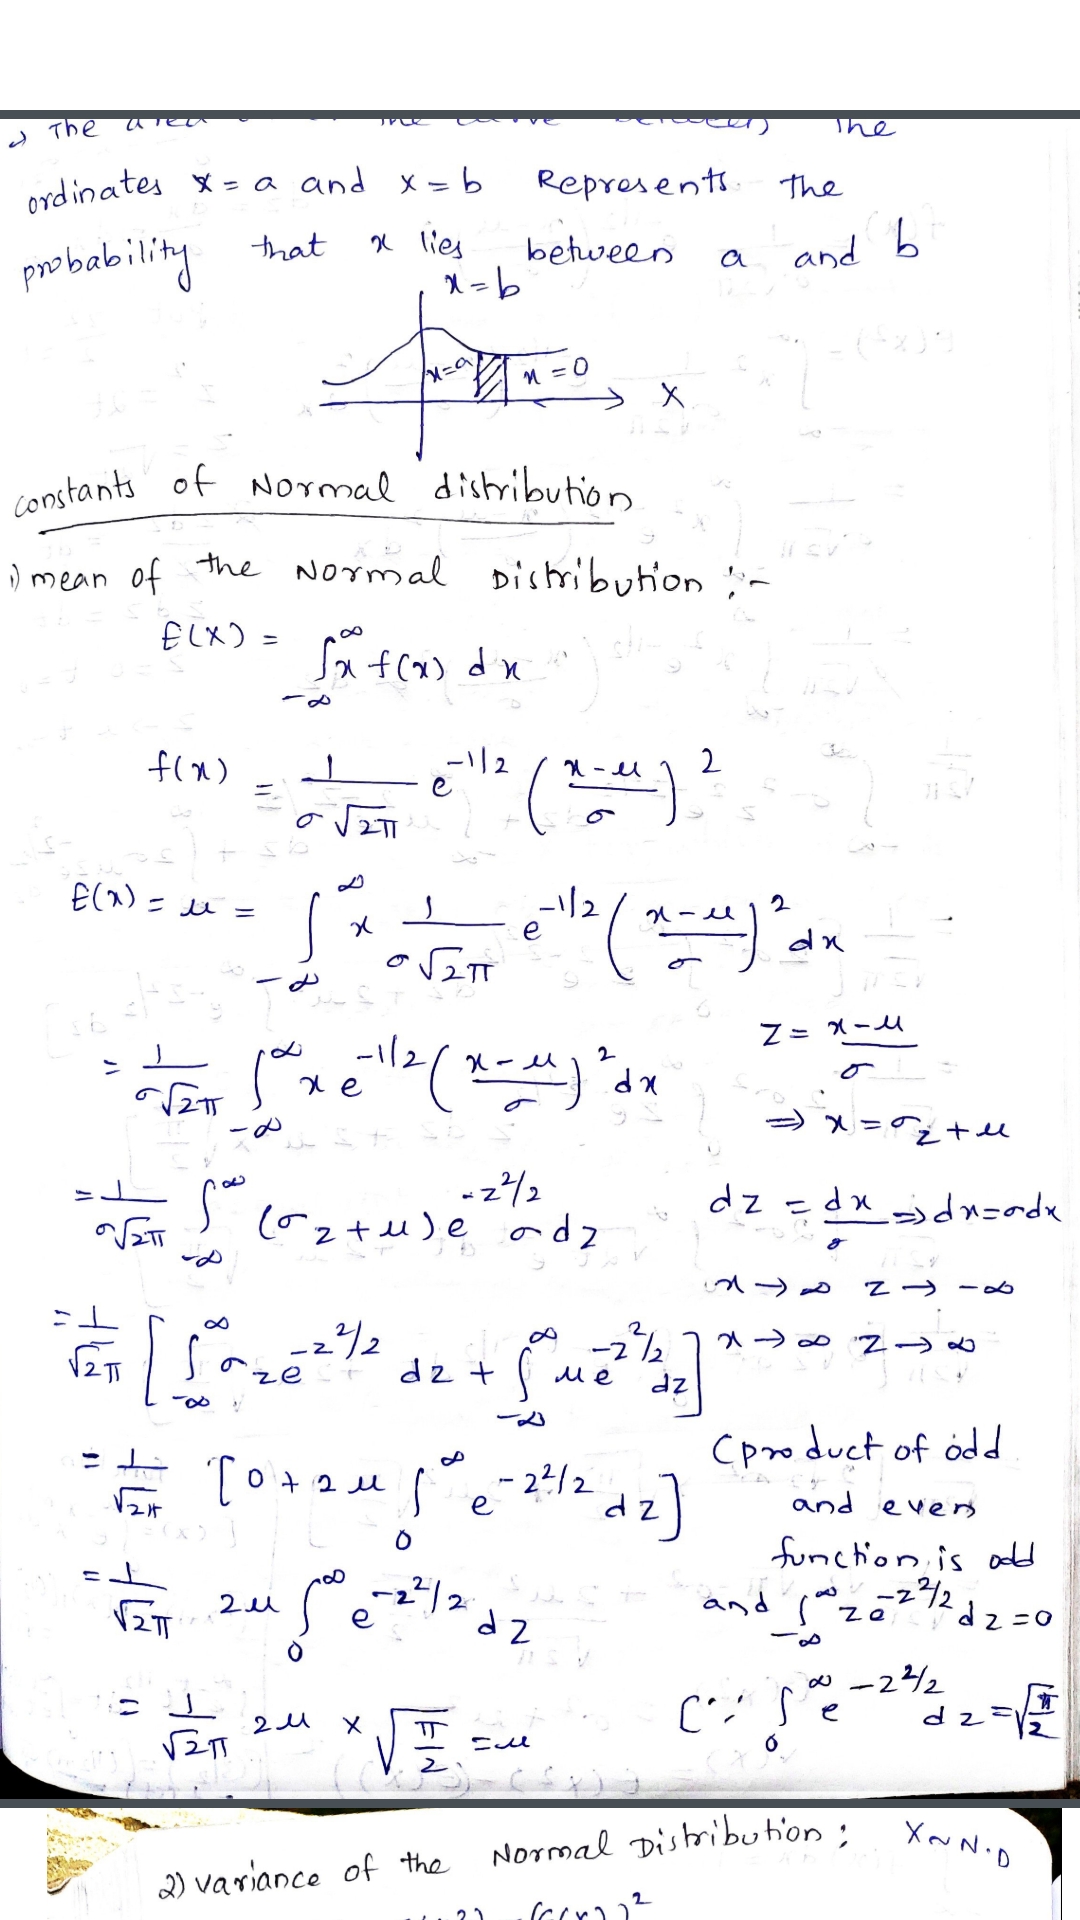 → The area the curve between the
ordinates x = a and x = b Represents the
probability that x lies between a and b
x=b
x=a x=0
X
constants of Normal distribution
1) mean of the Normal Distribution :-
E(X) = ∫_{-∞}^{∞} x f(x) dx
f(x) = 1/(σ√2π) e^{-1/2} ((x-μ)/σ)^2
E(x) = μ = ∫_{-∞}^{∞} x 1/(σ√2π) e^{-1/2} ((x-μ)/σ)^2 dx
= 1/(σ√2π) ∫_{-∞}^{∞} x e^{-1/2} ((x-μ)/σ)^2 dx
z = (x-μ)/σ
⇒ x = σz+μ
= 1/(σ√2π) ∫_{-∞}^{∞} (σz+μ) e^{-z²/2} σdz
dz = dx/σ ⇒ dx=σdx
x → ∞ z → -∞
= 1/√2π [∫_{-∞}^{∞} σze^{-z²/2} dz + ∫_{-∞}^{∞} μe^{-z²/2} dz]
x → ∞ z → ∞
= 1/√2π [0 + 2μ ∫_{0}^{∞} e^{-z²/2} dz]
(product of odd
and even
function is odd
= 1/√2π 2μ ∫_{0}^{∞} e^{-z²/2} dz
and ∫_{-∞}^{∞} ze^{-z²/2} dz=0
= 1/√2π 2μ × √(π/2) = μ
(∵ ∫_{0}^{∞} e^{-z²/2} dz = √(π/2)
2) variance of the Normal Distribution : X~N.D